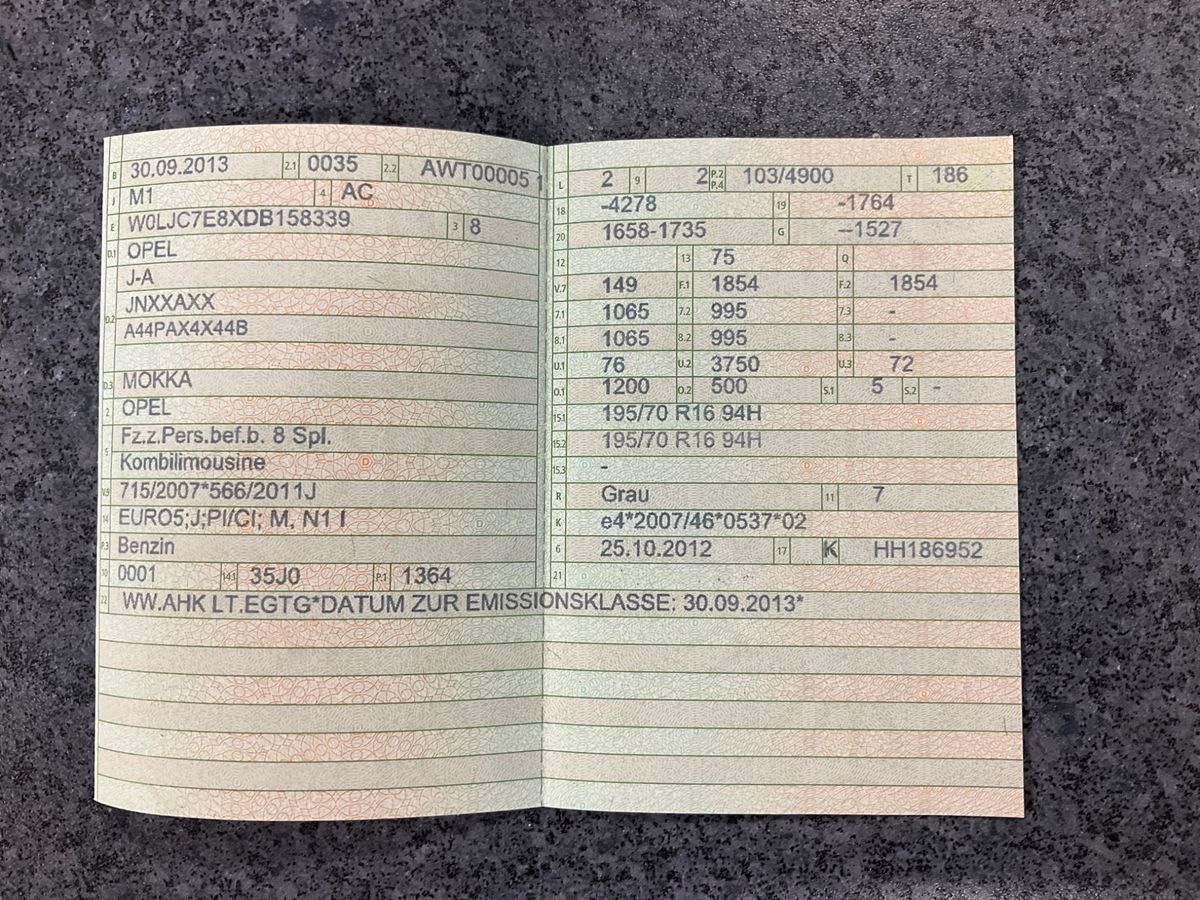 B 30.09.2013 2.1 0035 2.2 AWT00005 1
J M1 4 AC
E W0LJC7E8XDB158339 3 8
D.1 OPEL
J-A
D.2 JNXXAXX
A44PAX4X44B
D.3 MOKKA
2 OPEL
5 Fz.z.Pers.bef.b. 8 Spl.
Kombilimousine
V.9 715/2007*566/2011J
14 EURO5;J;PI/CI; M, N1 I
P.3 Benzin
10 0001 14.1 35J0 P.1 1364
22 WW.AHK LT.EGTG*DATUM ZUR EMISSIONSKLASSE: 30.09.2013*
L 2 9 2 P.2 P.4 103/4900 T 186
18 -4278 19 -1764
20 1658-1735 G --1527
12 13 75 Q
V.7 149 F.1 1854 F.2 1854
7.1 1065 7.2 995 7.3 -
8.1 1065 8.2 995 8.3 -
U.1 76 U.2 3750 U.3 72
O.1 1200 O.2 500 S.1 5 S.2 -
15.1 195/70 R16 94H
15.2 195/70 R16 94H
15.3 -
R Grau 11 7
K e4*2007/46*0537*02
6 25.10.2012 17 K HH186952
21